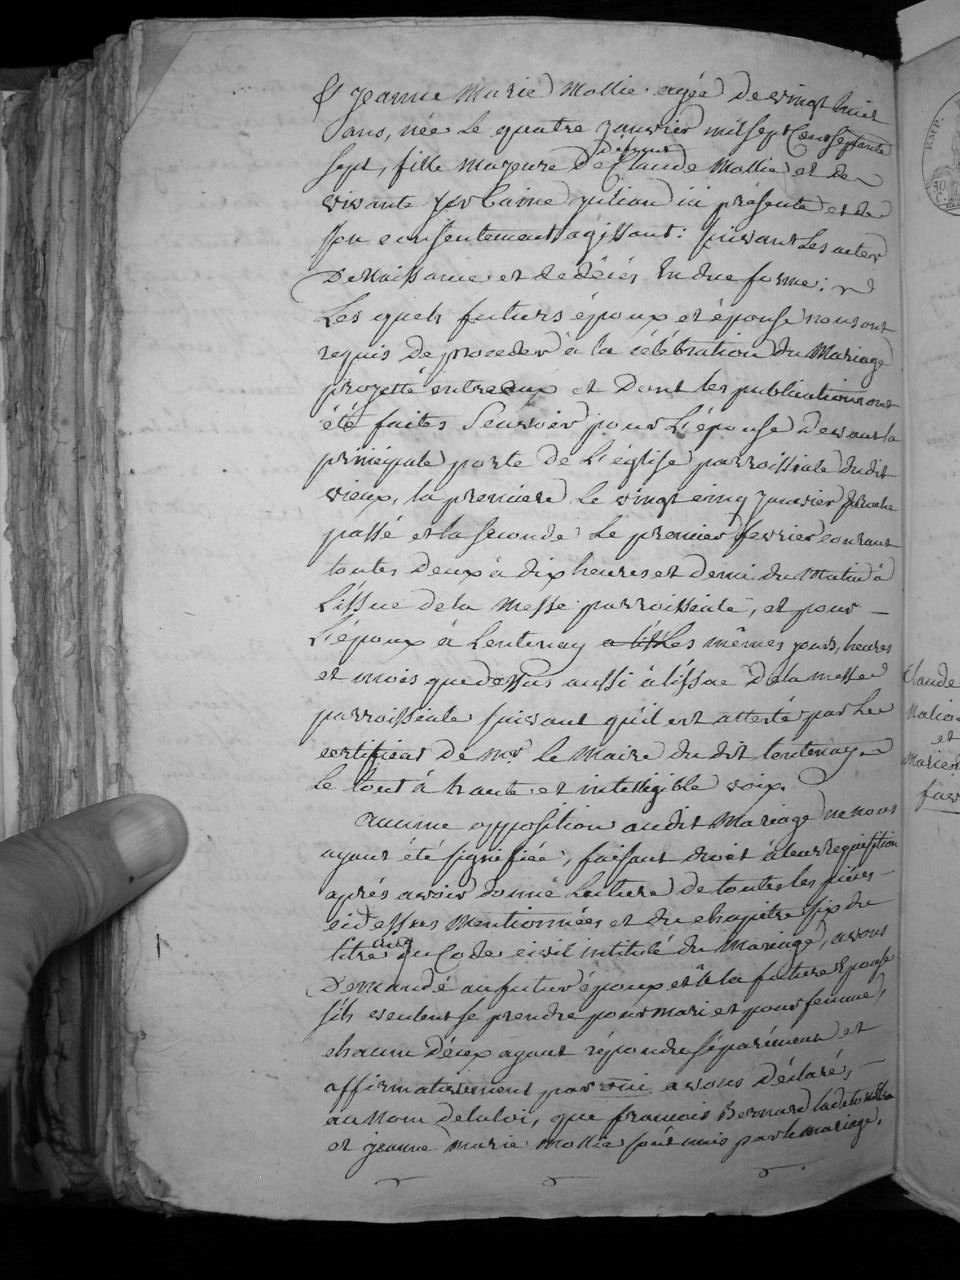 Et jeanne Marie Mollie agée de vingt huit
ans, née Le quatre janvier mil sept Cent septante
sept, fille Majeure De défunt Claude Mollie et de
vivante ici présente et de
son consentement agissant: suivant Les actes
De Naissance et de décés En due forme:
Les quels futurs époux et épouse nous ont
requis de proceder à la célébration du Mariage
projetté entre eux et Dont les publications ont
été faites Scavoir pour L'épouse Devant la
principale porte de L'église parroissiale dudit
vieux, la premiere Le vingt cinq janvier proche
passé et la seconde Le premier fevrier courant
toutes deux à dix heures et demi du Matin à
L'issue de la Messe parroissiale, et pour
L'époux à Lentenay Les mêmes jours, heures
et mois que dessus aussi à l'issue De la messe
parroissiale suivant qu'il est attesté par Le
certificat de Mr le Maire du dit Lentenay
Le tout à haute et intelligible voix.
Aucune opposition audit Mariage ne nous
ayant été signifiée, faisant droit à leur requisition
après avoir donné Lecture de toutes les pièces
cidessus Mentionnées et du chapitre six du
titre cinq du Code civil intitulé du Mariage, avons
Demandé au futur époux et à la future Epouse
s'ils veulent se prendre pour mari et pour femme,
chacun D'eux ayant répondu séparément et
affirmativement par oui avons déclaré,
au Nom de la loi, que françois Bernard
et jeanne marie Mollie sont unis par le mariage.
Claude
et
EMP.
30
C.